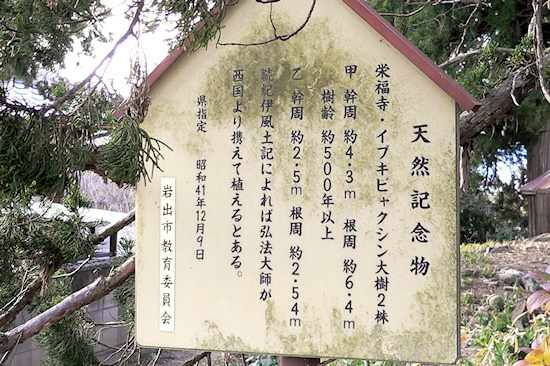 天然記念物
栄福寺・イブキビャクシン大樹2株
甲 幹周 約4.3m 根周 約6.4m
樹齢 約500年以上
乙 幹周 約2.5m 根周 約2.54m
続紀伊風土記によれば弘法大師が
西国より携えて植えるとある。
県指定 昭和41年12月9日
岩出市教育委員会